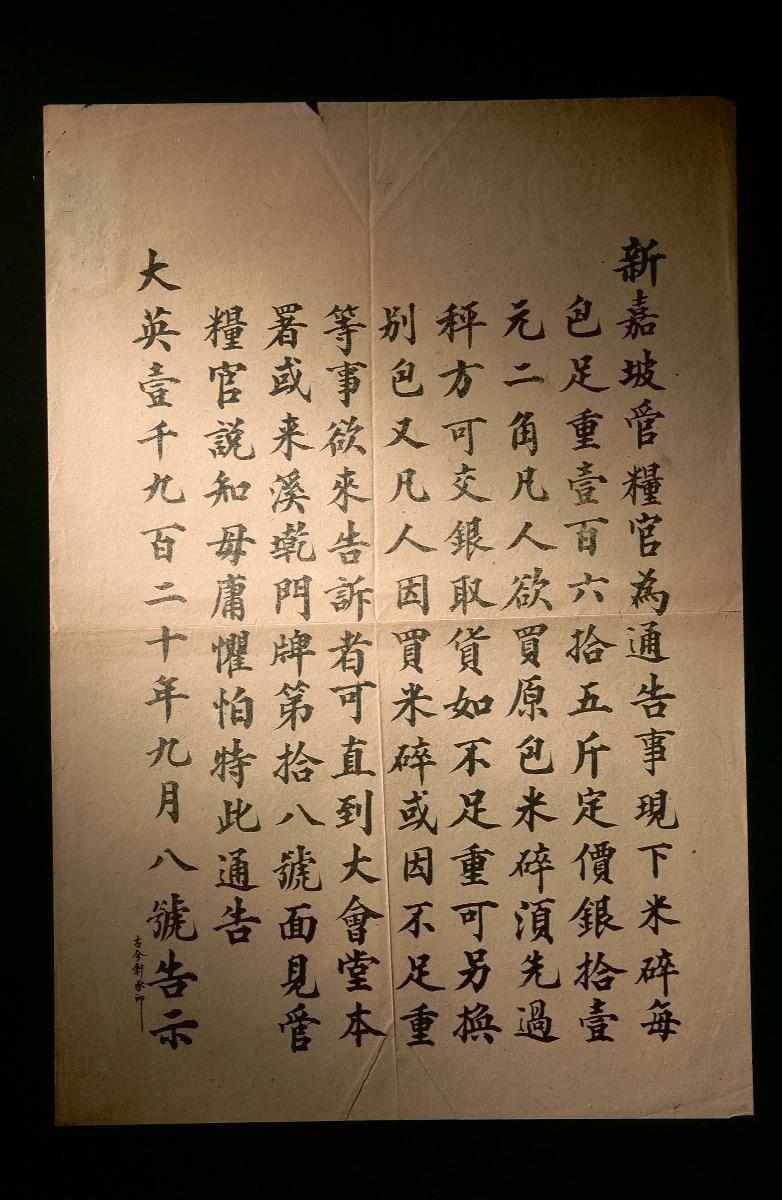 新嘉坡管糧官為通告事現下米碎每
包足重壹百六拾五斤定價銀拾壹
元二角凡人欲買原包米碎湏先過
秤方可交銀取貨如不足重可另換
别包又凡人因買米碎或因不足重
等事欲來告訴者可直到大會堂本
署或来溪墘門牌第拾八號面見管
糧官説知毋庸懼怕特此通告
大英壹千九百二十年九月八號告示
古今軒承印